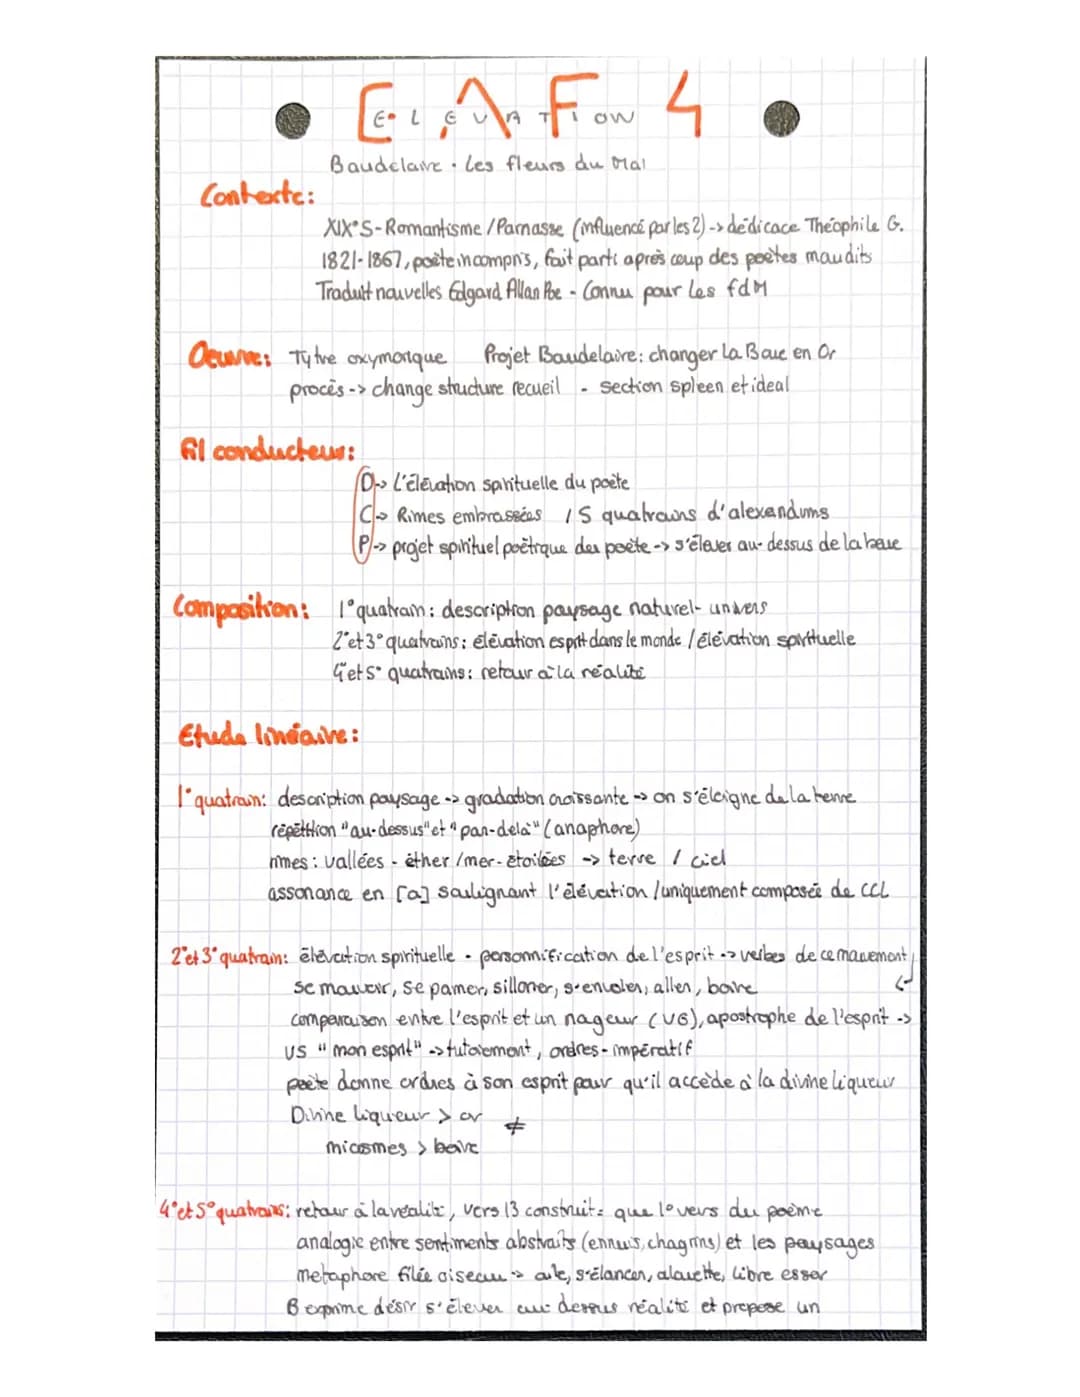 EAF 4
ELEVATION
Baudelaire . Les fleurs du Mal
Contexte:
XIX°S - Romantisme / Parnasse (influencé par les 2) -> dédicace Théophile G.
1821-1867, poète incompris, fait parti après coup des poètes maudits
Traduit nouvelles Edgard Allan Poe - Connu pour Les fdM
Oeuvre: Tytre oxymorique Projet Baudelaire: changer la Boue en Or
procès -> change structure recueil - section spleen et ideal
fil conducteur:
D -> L'élévation spirituelle du poète
C -> Rimes embrassées / 5 quatrains d'alexandrins
P -> projet spirituel poètique du poète -> s'élever au-dessus de la boue
Composition: 1° quatrain: description paysage naturel- univers
2° et 3° quatrains: élévation esprit dans le monde / élévation spirituelle
4° et 5° quatrains: retour à la réalité
Etude linéaire:
1° quatrain: description paysage -> gradation croissante -> on s'éloigne de la terre
répétition "au-dessus" et "par-delà" (anaphore)
rimes: vallées - éther / mer - étoilées -> terre / ciel
assonance en [a] soulignant l'élévation / uniquement composée de CCL
2° et 3° quatrain: élévation spirituelle - personnification de l'esprit -> verbes de ce mouvement
se mouvoir, se pamer, silloner, s'envoler, aller, boire
comparaison entre l'esprit et un nageur (V6), apostrophe de l'esprit ->
V5 "mon esprit" -> tutoiement, ordres - impératif
poète donne ordres à son esprit pour qu'il accède à la divine liqueur
Divine liqueur > or ≠
miasmes > boue
4° et 5° quatrains: retour à la réalité, vers 13 construit = que 1° vers du poème
analogie entre sentiments abstraits (ennuis, chagrins) et les paysages
métaphore filée oiseau -> aile, s'élancer, alouette, libre essor
B exprime désir s'élever au dessus réalité et propose un